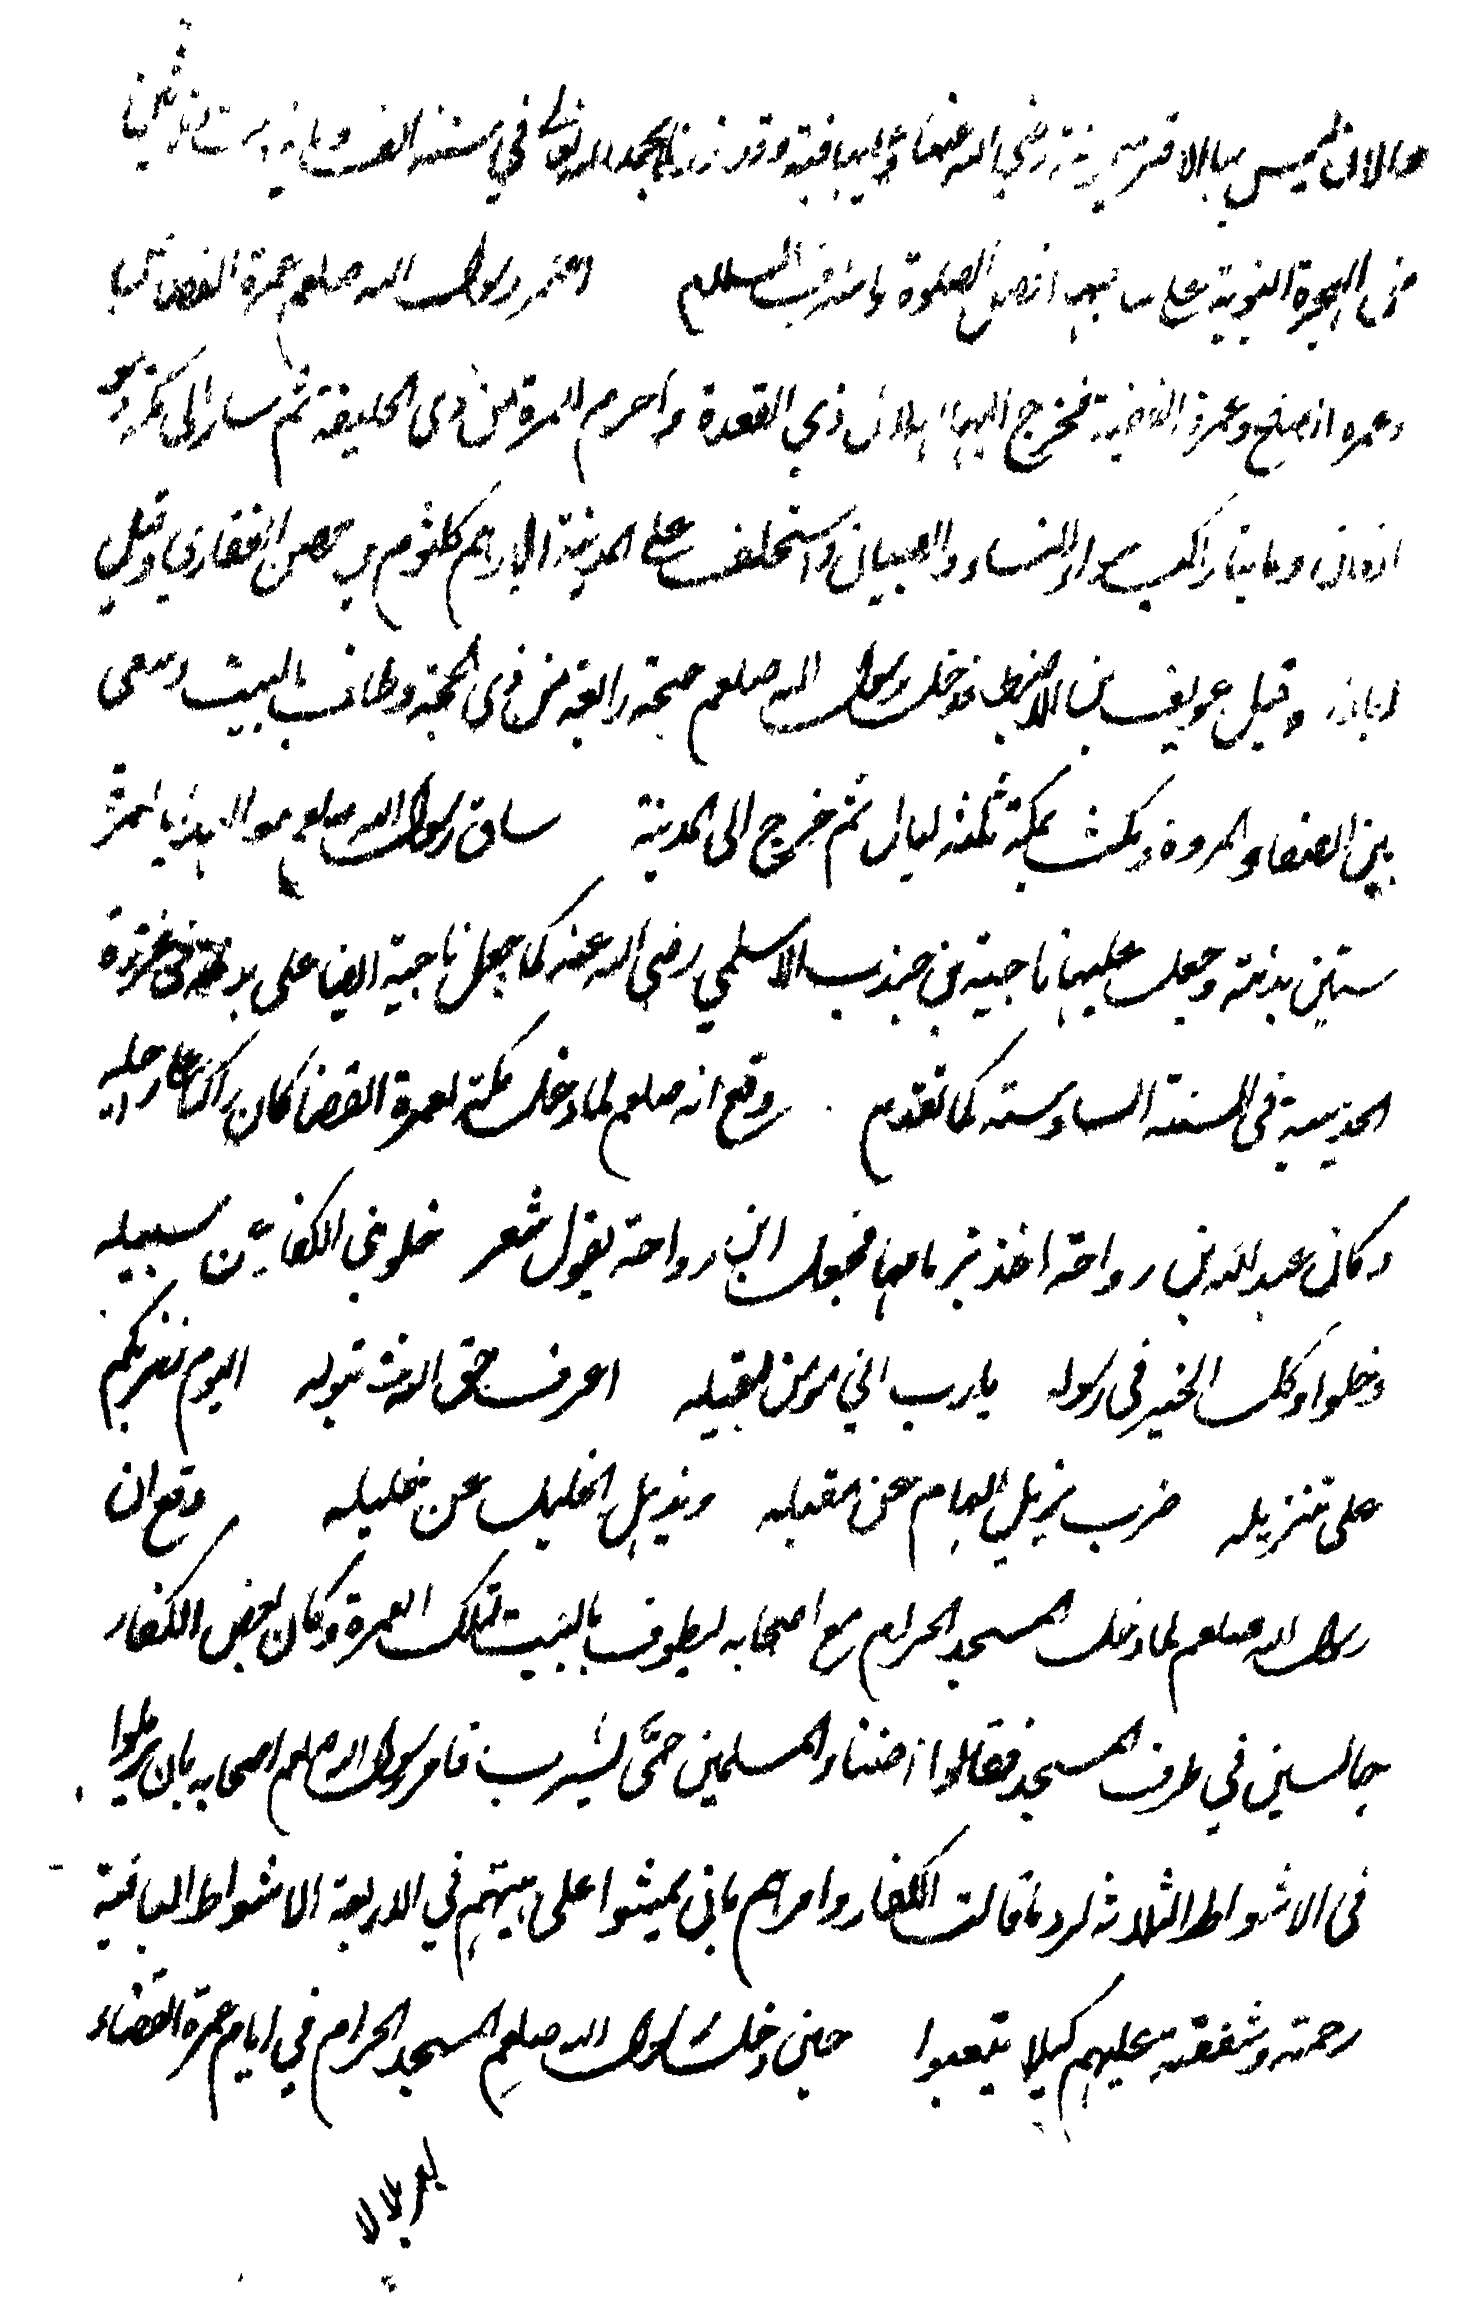 والان ليس بها الا قبر ميمونة رضي الله عنها وعليها قبة وقد زرناها بحمد الله تعالى في سنة الف ومائة وست وثلثين
من الهجرة النبوية على صاحبها افضل الصلوة واشرف السلام واعتمر رسول الله صلعم عمرة القضا
وعمرة الصلح وعمرة القضية فخرج اليها هلال ذي القعدة واحرم للعمرة من ذى الحليفة ثم سار الى مكة وهو
الفان ومايتا راكب سواء النساء والصبيان واستخلف على المدينة ابا رهم كلثوم بن حصن الغفاري وقيل
اباذر وقيل عويف بن الاضبط فدخل رسول الله صلعم صبحة رابعة من ذى الحجة وطاف بالبيت وسعى
بين الصفا والمروة ومكث بمكة ثلثة ليال ثم خرج الى المدينة ساق رسول الله صلعم
ستين بدنة وجعل عليها ناجية بن جندب الاسلمي رضي الله عنه كما جعل ناجية ايضا على بدنه فى غزوة
الحديبية فى السنة السادسة كما تقدم وقع انه صلعم لما دخل مكة لعمرة القضا كان راكبا على راحلته
وكان عبد الله بن رواحة اخذ بزمامها فجعل ابن رواحة يقول شعر خلو بني الكفار عن سبيله
وخلوا وكل الخير فى رسوله يارب اني مومن بقيله اعرف حق الله فى قبوله اليوم نضربكم
على تنزيله ضرب يزيل الهام عن مقيله ويذهل الخليل عن خليله وقع ان
رسول الله صلعم لما دخل المسجد الحرام مع اصحابه ليطوف بالبيت لتلك العمرة وكان بعض الكفار
جالسين في طرف المسجد فقالوا اضنا والمسلمين حمى يثرب فامر رسول الله صلعم اصحابه بان يرملوا
فى الاشواط الثلاثة لرد ما قالت الكفار وامرهم بان يمشوا على هيتهم في الاربعة الاشواط الباقية
رحمة وشفقة عليهم كيلا يتعبوا حين دخل رسول الله صلعم المسجد الحرام في ايام عمرة القضاء
بلالا